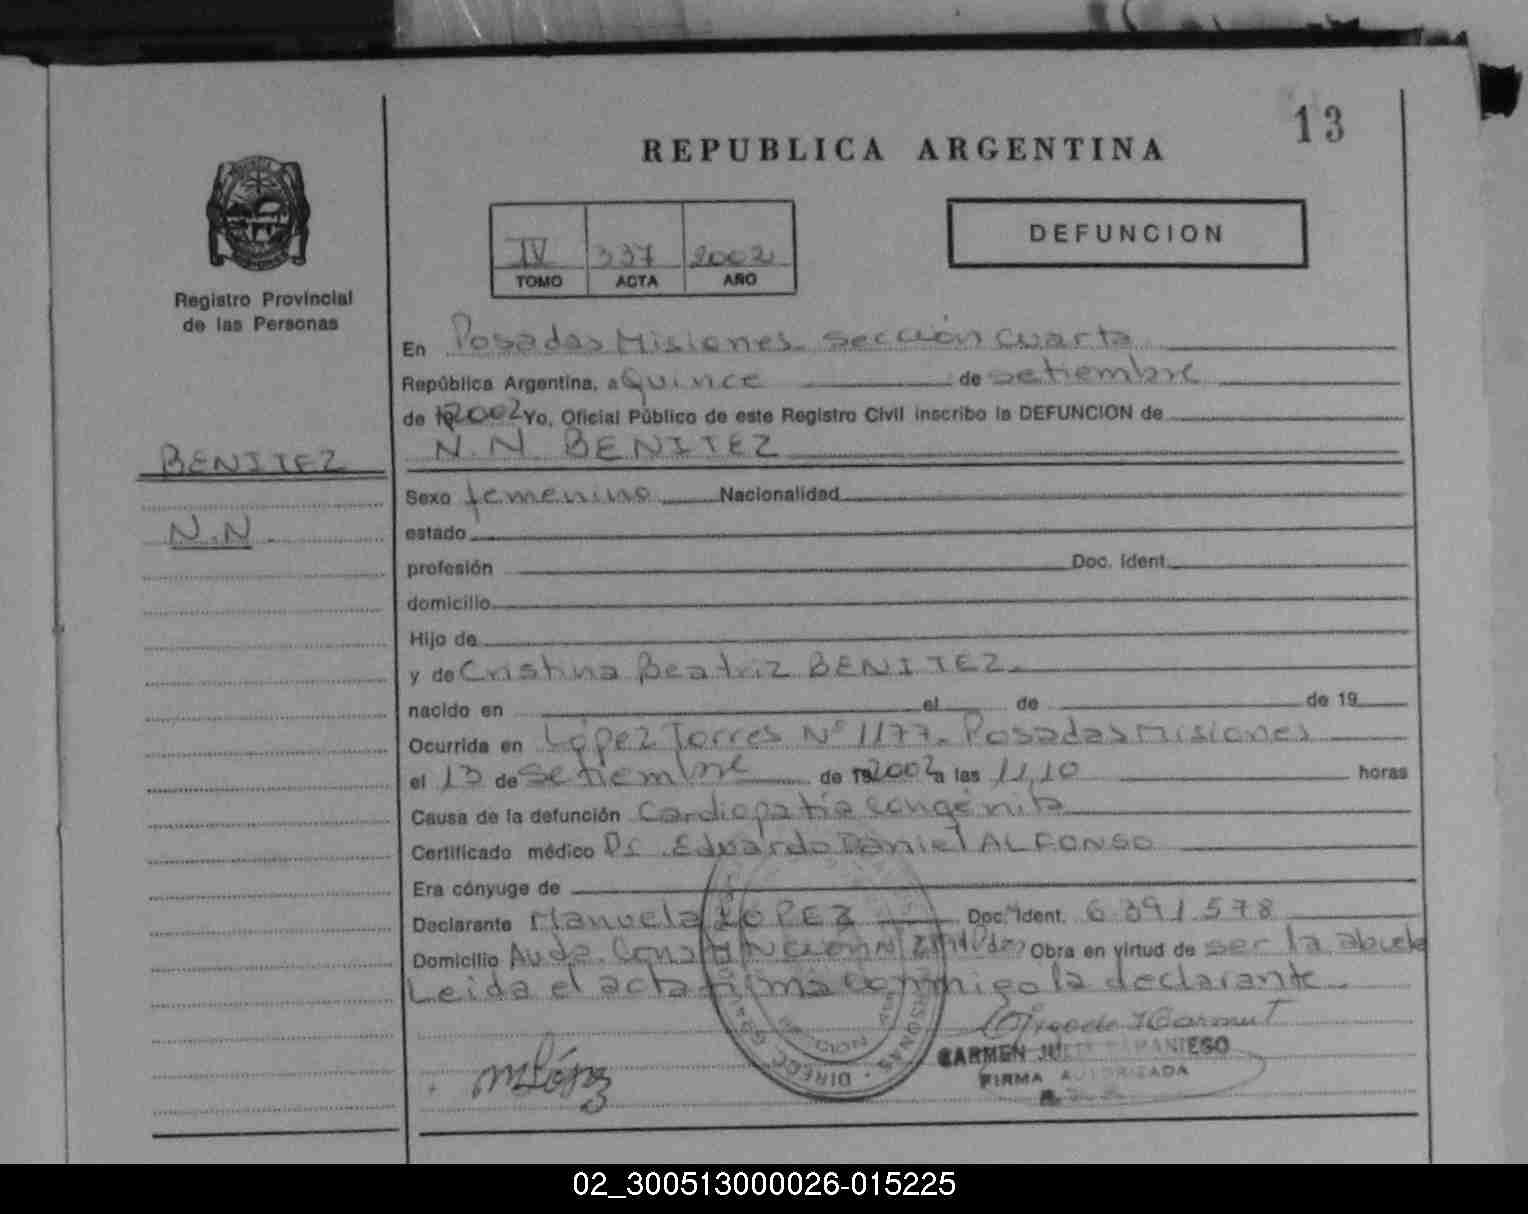 13
REPUBLICA ARGENTINA
IV 337 2002
TOMO ACTA AÑO
DEFUNCION
Registro Provincial
de las Personas
BENITEZ
N.N
En Posadas Misiones sección cuarta
República Argentina, a quince de setiembre
de 2002 Yo, Oficial Público de este Registro Civil inscribo la DEFUNCION de
N.N. BENITEZ
Sexo femenino Nacionalidad
estado
profesión Doc. Ident.
domicilio
Hijo de
y de Cristina Beatriz BENITEZ
nacido en el de de 19
Ocurrida en López Torres Nº 1177. Posadas Misiones
el 13 de setiembre de 2002 a las 11,10 horas
Causa de la defunción Cardiopatía congénita
Certificado médico Dr. Eduardo Daniel ALFONSO
Era cónyuge de
Declarante Manuela LOPEZ Doc. Ident. 6.391.578
Domicilio Avda. Constitución Obra en virtud de ser la abuela
Leida el acta firma conmigo la declarante
M López
CARMEN SAMANIEGO
FIRMA AUTORIZADA
02_300513000026-015225